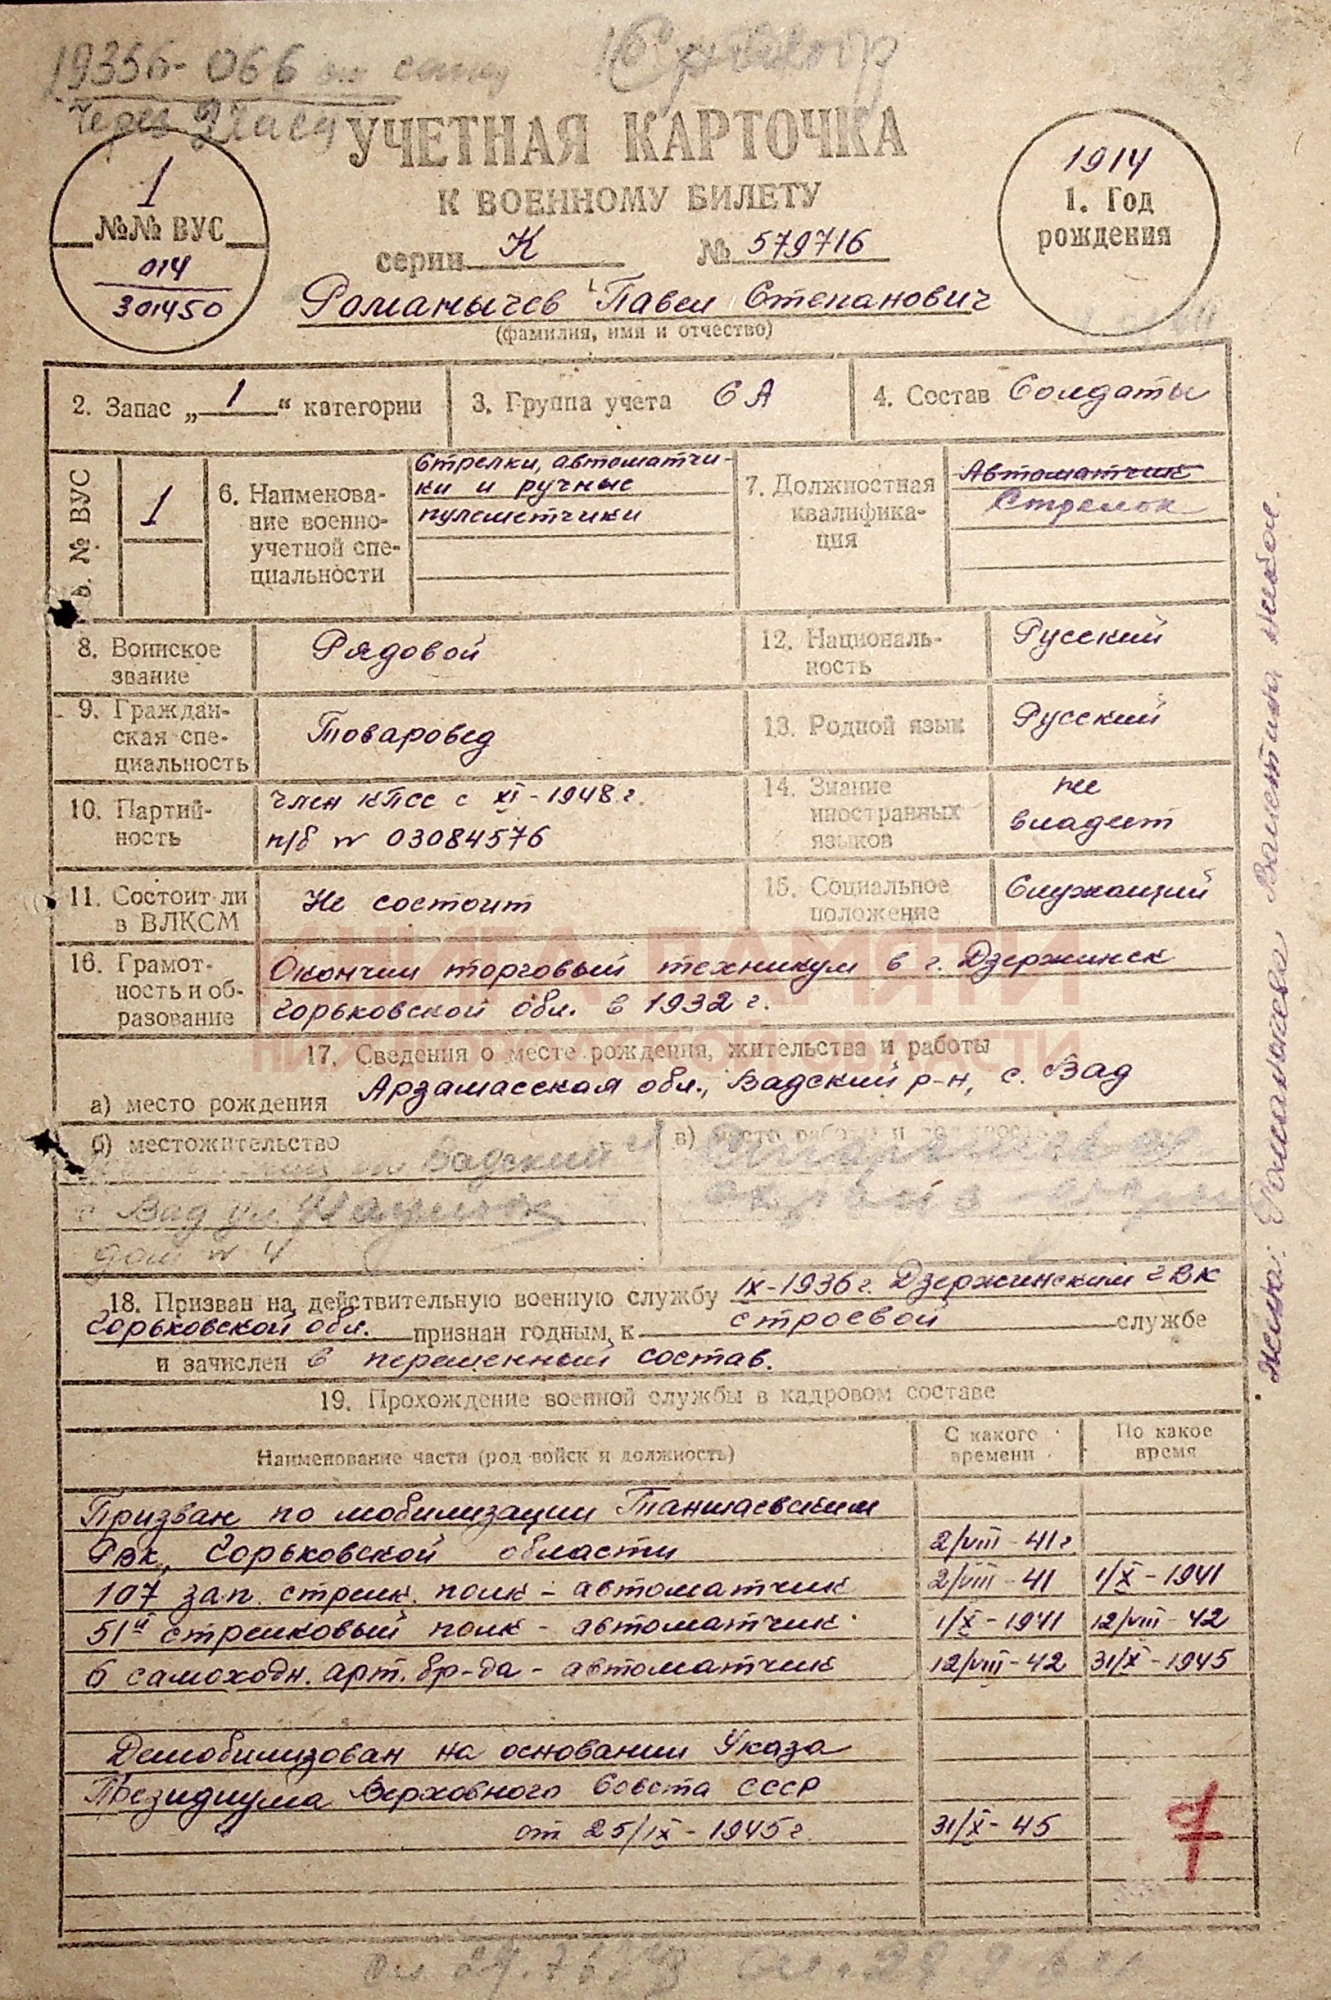 19356-066
через 2 часа
УЧЕТНАЯ КАРТОЧКА
К ВОЕННОМУ БИЛЕТУ
серии К № 579716
1
№№ ВУС
014
301450
1914
1. Год
рождения
Романычев Павел Степанович
(фамилия, имя и отчество)
2. Запас „ 1 “ категории
3. Группа учета СА
4. Состав Солдаты
5. № ВУС
1
6. Наименова-
ние военно-
учетной спе-
циальности
Стрелки, автоматчи-
ки и ручные
пулеметчики
7. Должностная
квалифика-
ция
Автоматчик
Стрелок
8. Воинское
звание
Рядовой
12. Националь-
ность
Русский
9. Граждан-
ская спе-
циальность
Товаровед
13. Родной язык
Русский
10. Партий-
ность
член КПСС с XI-1948 г.
п/б № 03084576
14. Знание
иностранных
языков
не
владеет
11. Состоит ли
в ВЛКСМ
Не состоит
15. Социальное
положение
Служащий
16. Грамот-
ность и об-
разование
Окончил торговый техникум в г. Дзержинск
Горьковской обл. в 1932 г.
КНИГА ПАМЯТИ
НИЖЕГОРОДСКОЙ ОБЛАСТИ
17. Сведения о месте рождения, жительства и работы
а) место рождения Арзамасская обл., Вадский р-н, с. Вад
б) местожительство
Вадский
с Вад ул
дом № 4
в) место работы и
18. Призван на действительную военную службу IX-1936 г. Дзержинским ГВК
Горьковской обл. признан годным к строевой службе
и зачислен в переменный состав.
19. Прохождение военной службы в кадровом составе
Наименование части (род войск и должность)
С какого
времени
По какое
время
Призван по мобилизации Тоншаевским
РВК, Горьковской области 2/VIII-41 г.
107 зап. стрелк. полк - автоматчик 2/VIII-41 1/X-1941
51й стрелковый полк - автоматчик 1/X-1941 12/VIII-42
6 самоходн. арт. бр-да - автоматчик 12/VIII-42 31/X-1945
Демобилизован на основании Указа
Президиума Верховного Совета СССР
от 25/IX-1945 г. 31/X-45
жена: Романычева Валентина